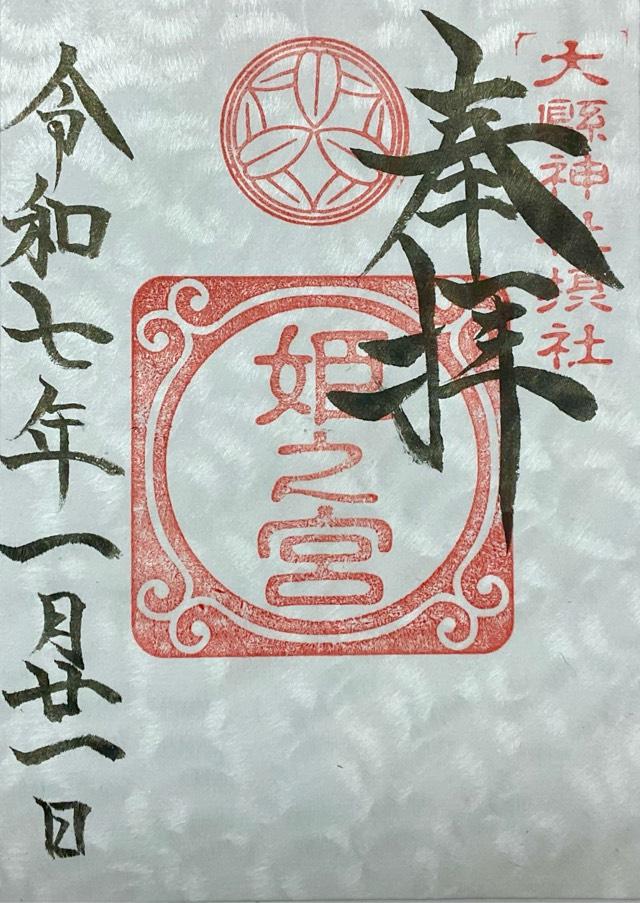 大縣神社境社
奉拝
姫之宮
令和七年一月廿一日